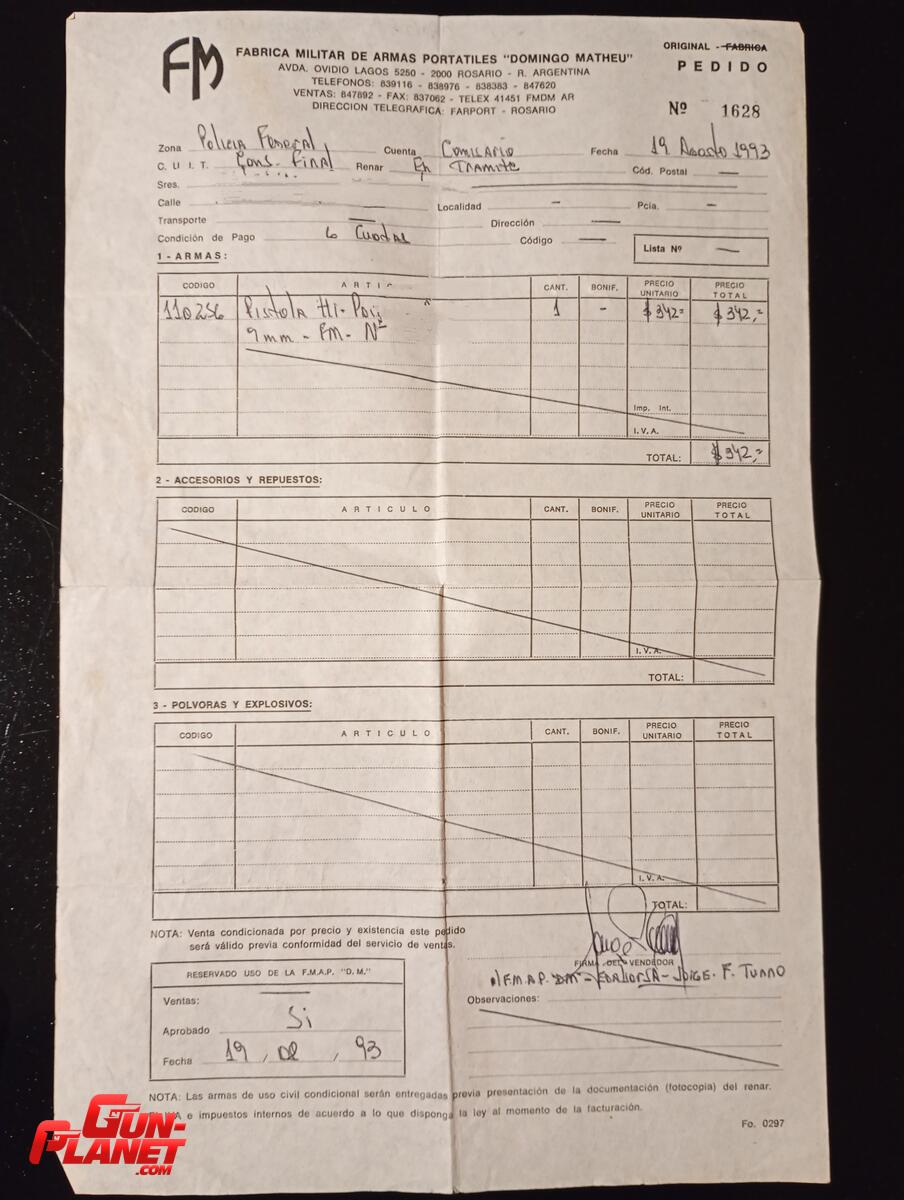 FM
FABRICA MILITAR DE ARMAS PORTATILES "DOMINGO MATHEU"
AVDA. OVIDIO LAGOS 5250 - 2000 ROSARIO - R. ARGENTINA
TELEFONOS: 839116 - 838976 - 838383 - 847620
VENTAS: 847892 - FAX: 837062 - TELEX 41451 FMDM AR
DIRECCION TELEGRAFICA: FARPORT - ROSARIO
ORIGINAL - FABRICA
PEDIDO
Nº 1628
Zona Policia Federal Cuenta Comisario Fecha 19 Agosto 1993
C. U. I. T. Cons. Final Renar En Tramite Cód. Postal —
Sres.
Calle Localidad — Pcia. —
Transporte — Dirección —
Condición de Pago 6 Cuotas Código — Lista Nº —
1 - ARMAS:
CODIGO ARTIC CANT. BONIF. PRECIO UNITARIO PRECIO TOTAL
110256 Pistola Hi-Pow 1 - $ 342= $ 342,=
9 mm - FM - Nº
Imp. Int.
I. V. A.
TOTAL: $ 342,=
2 - ACCESORIOS Y REPUESTOS:
CODIGO ARTICULO CANT. BONIF. PRECIO UNITARIO PRECIO TOTAL
I. V. A.
TOTAL:
3 - POLVORAS Y EXPLOSIVOS:
CODIGO ARTICULO CANT. BONIF. PRECIO UNITARIO PRECIO TOTAL
I. V. A.
TOTAL:
NOTA: Venta condicionada por precio y existencia este pedido
será válido previa conformidad del servicio de ventas.
FIRMA DEL VENDEDOR
F.M.A.P. "DM" - - JORGE. F. TURRO
RESERVADO USO DE LA F.M.A.P. "D.M."
Ventas: —
Aprobado Si
Fecha 19, 08, 93
Observaciones:
NOTA: Las armas de uso civil condicional serán entregadas previa presentación de la documentación (fotocopia) del renar.
e impuestos internos de acuerdo a lo que disponga la ley al momento de la facturación.
Fo. 0297
GUN-
PLANET
.COM